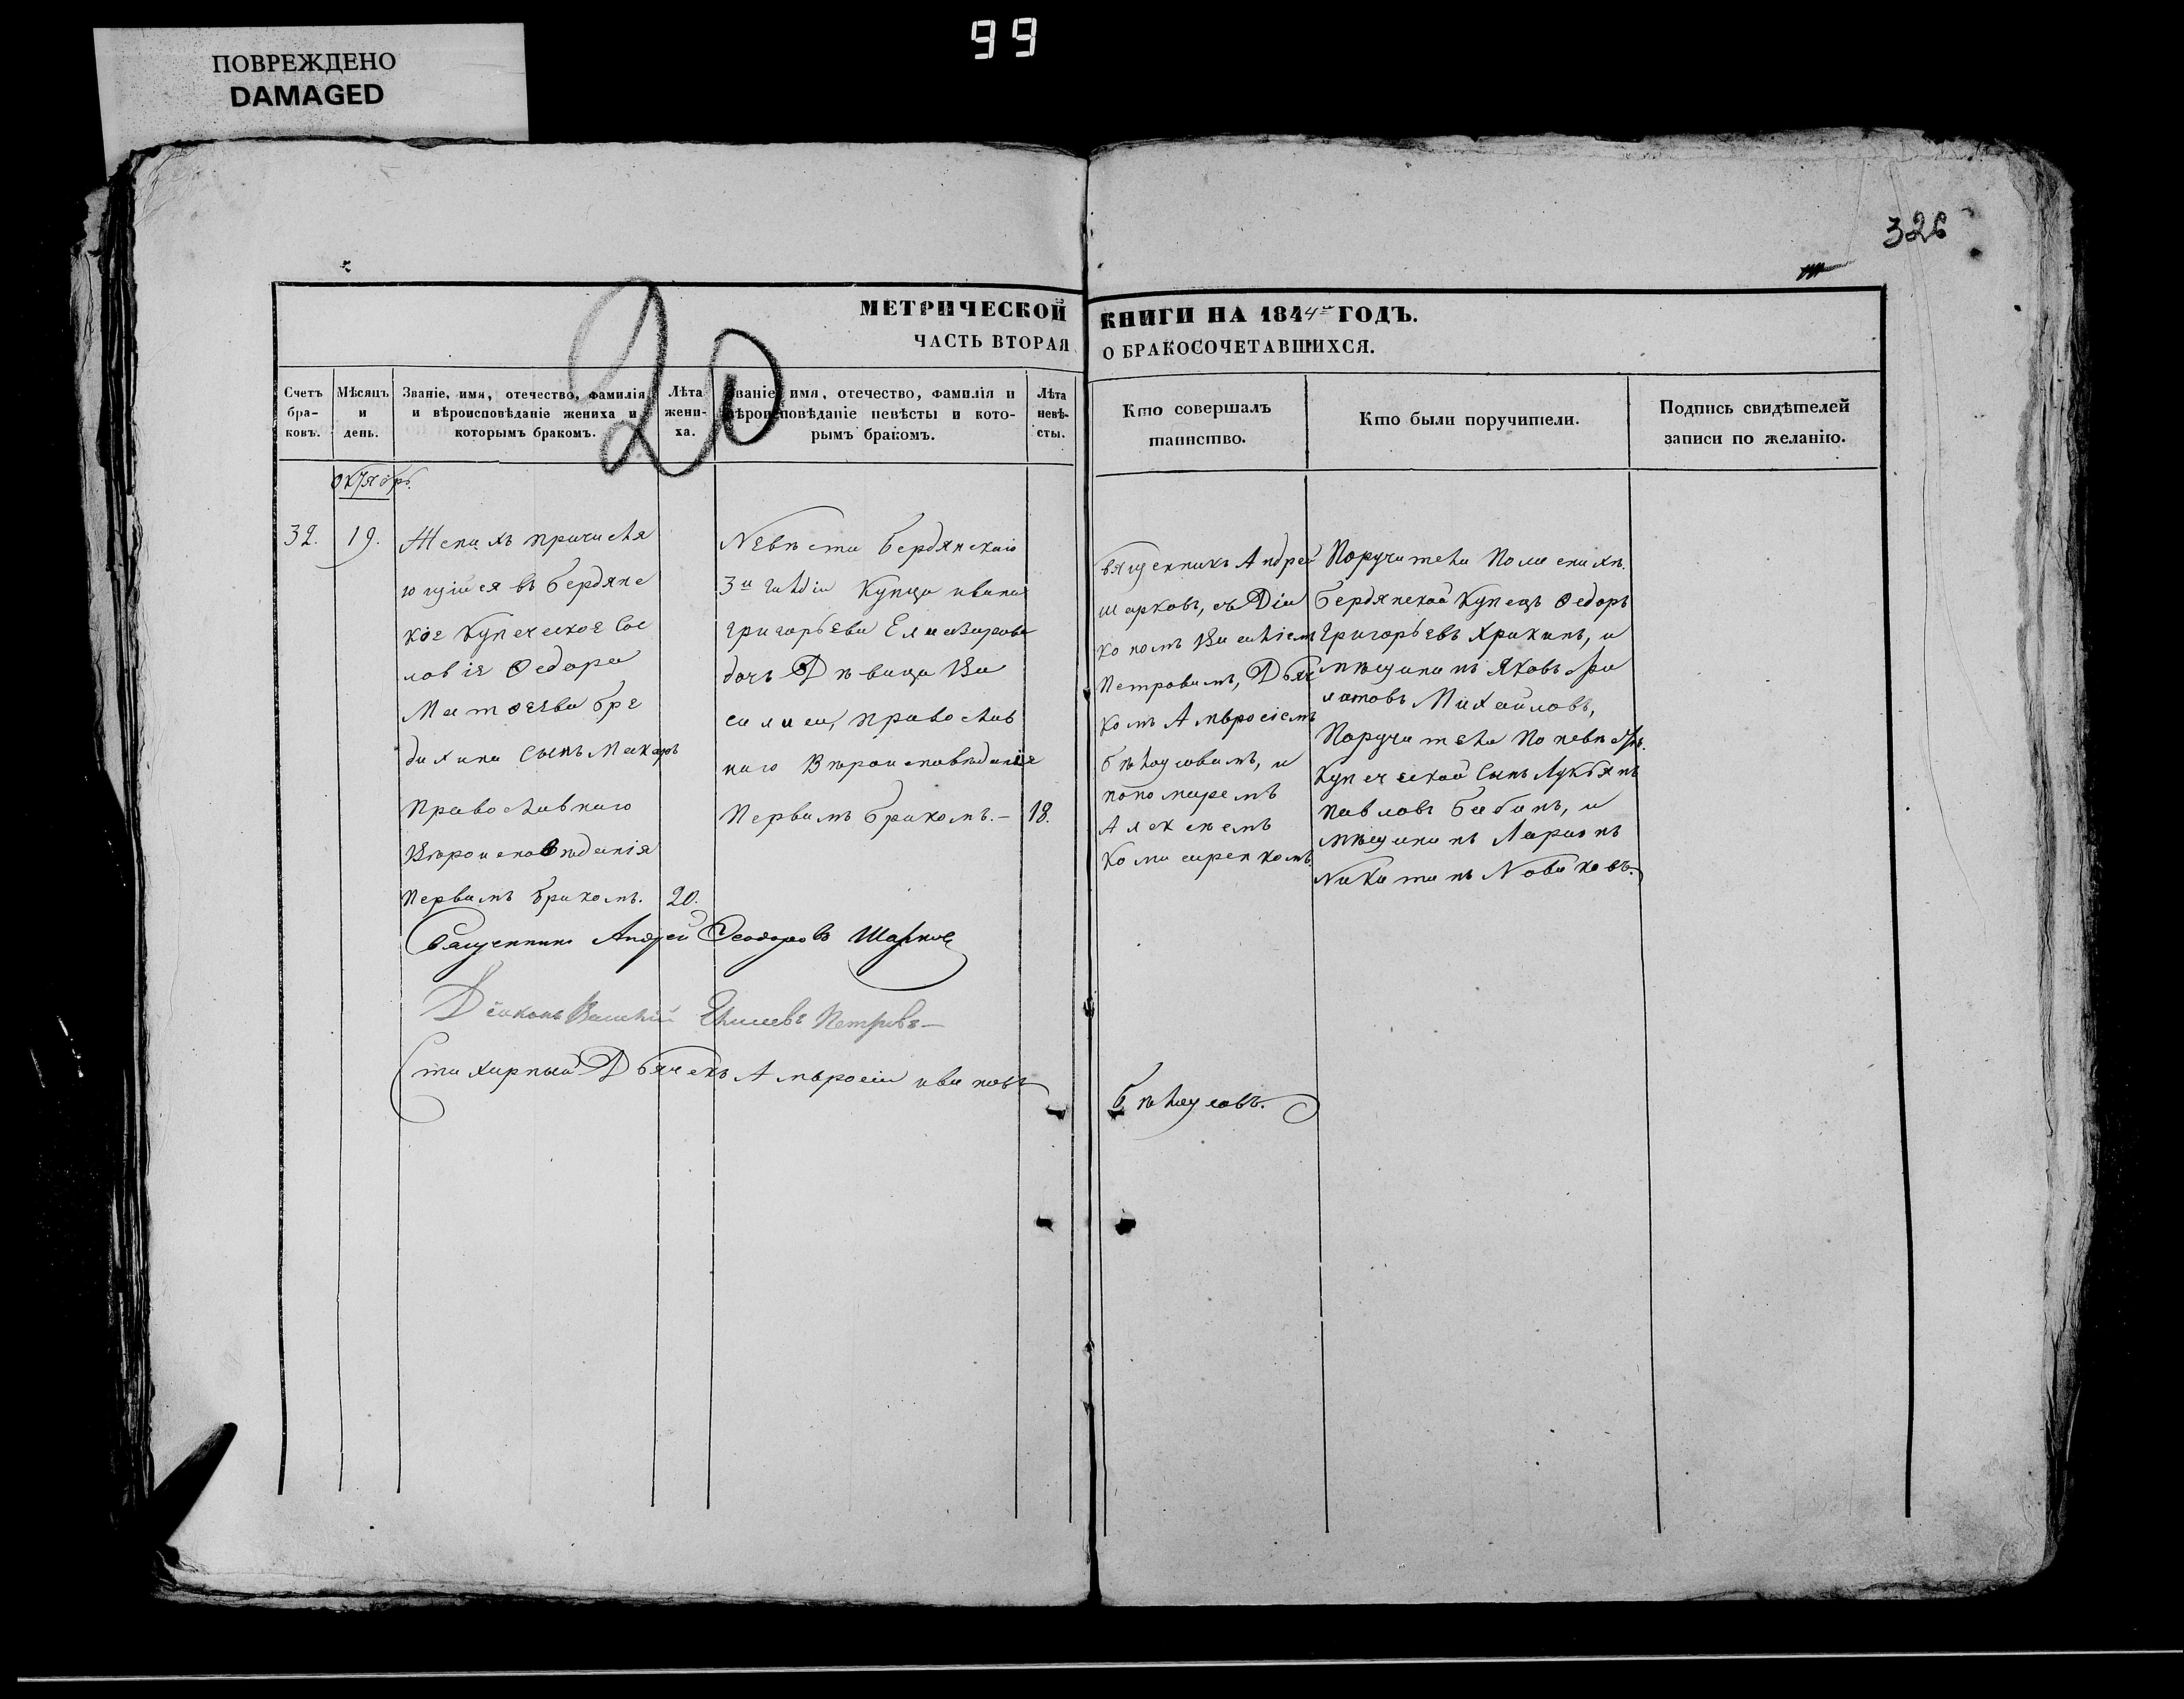 99
ПОВРЕЖДЕНО
DAMAGED
326
МЕТРИЧЕСКОЙ КНИГИ НА 1844 ГОДЪ.
ЧАСТЬ ВТОРАЯ О БРАКОСОЧЕТАВШИХСЯ.
20
Счетъ бра-
ковъ.
Мѣсяцъ
и
день.
Званіе, имя, отечество, фамилія
и вѣроисповѣданіе жениха и
которымъ бракомъ.
Лѣта
жени-
ха.
Званіе, имя, отечество, фамилія и
вѣроисповѣданіе невѣсты и кото-
рымъ бракомъ.
Лѣта
невѣ-
сты.
Кто совершалъ
таинство.
Кто были поручители.
Подпись свидѣтелей
записи по желанію.
Октябрь.
32.
19.
Женихъ причисля
ющійся въ бердянс
кое Купеческое Сос
ловіе Ѳедора
Матѳеева бре
дихина Сынъ Макаръ
Православнаго
Вѣроисповѣданія
Первымъ бракомъ.
20.
Невѣста бердянскаго
3й гильдіи Купца ивана
григорьева Елисаврова
дочь Дѣвица Ва
силиса, православ
наго Вѣроисповѣданія
Первымъ бракомъ. –
18.
вященникъ Андрей
шарковъ, съ Діа
кономъ Василіемъ
Петровымъ, Дьяч
комъ Амвросіемъ
бѣлоусовымъ, и
пономаремъ
Алексѣемъ
Комисаренкомъ.
Поручители По женихѣ.
бердянской Купецъ Ѳедоръ
григорьевъ Хрикинъ, и
мѣщанинъ Яковъ Фи
латовъ Михайловъ,
Поручители По невѣстѣ.
Купеческой Сынъ Лукьянъ
павловъ бабинъ, и
мѣщанинъ Ларіонъ
Никитинъ Новиковъ.
Священникъ Андрей Ѳеодоровъ Шарковъ
Діаконъ Василій Петровъ –
Стихарный Дьячекъ Амвросій ивановъ бѣлоусовъ.